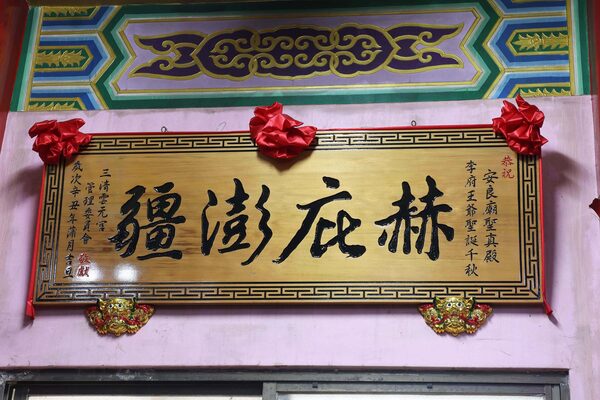 恭祝
安良廟聖真殿
李府王爺聖誕千秋
赫庇澎疆
三清雲元宮
管理委員會 敬獻
歲次辛丑年蒲月吉旦